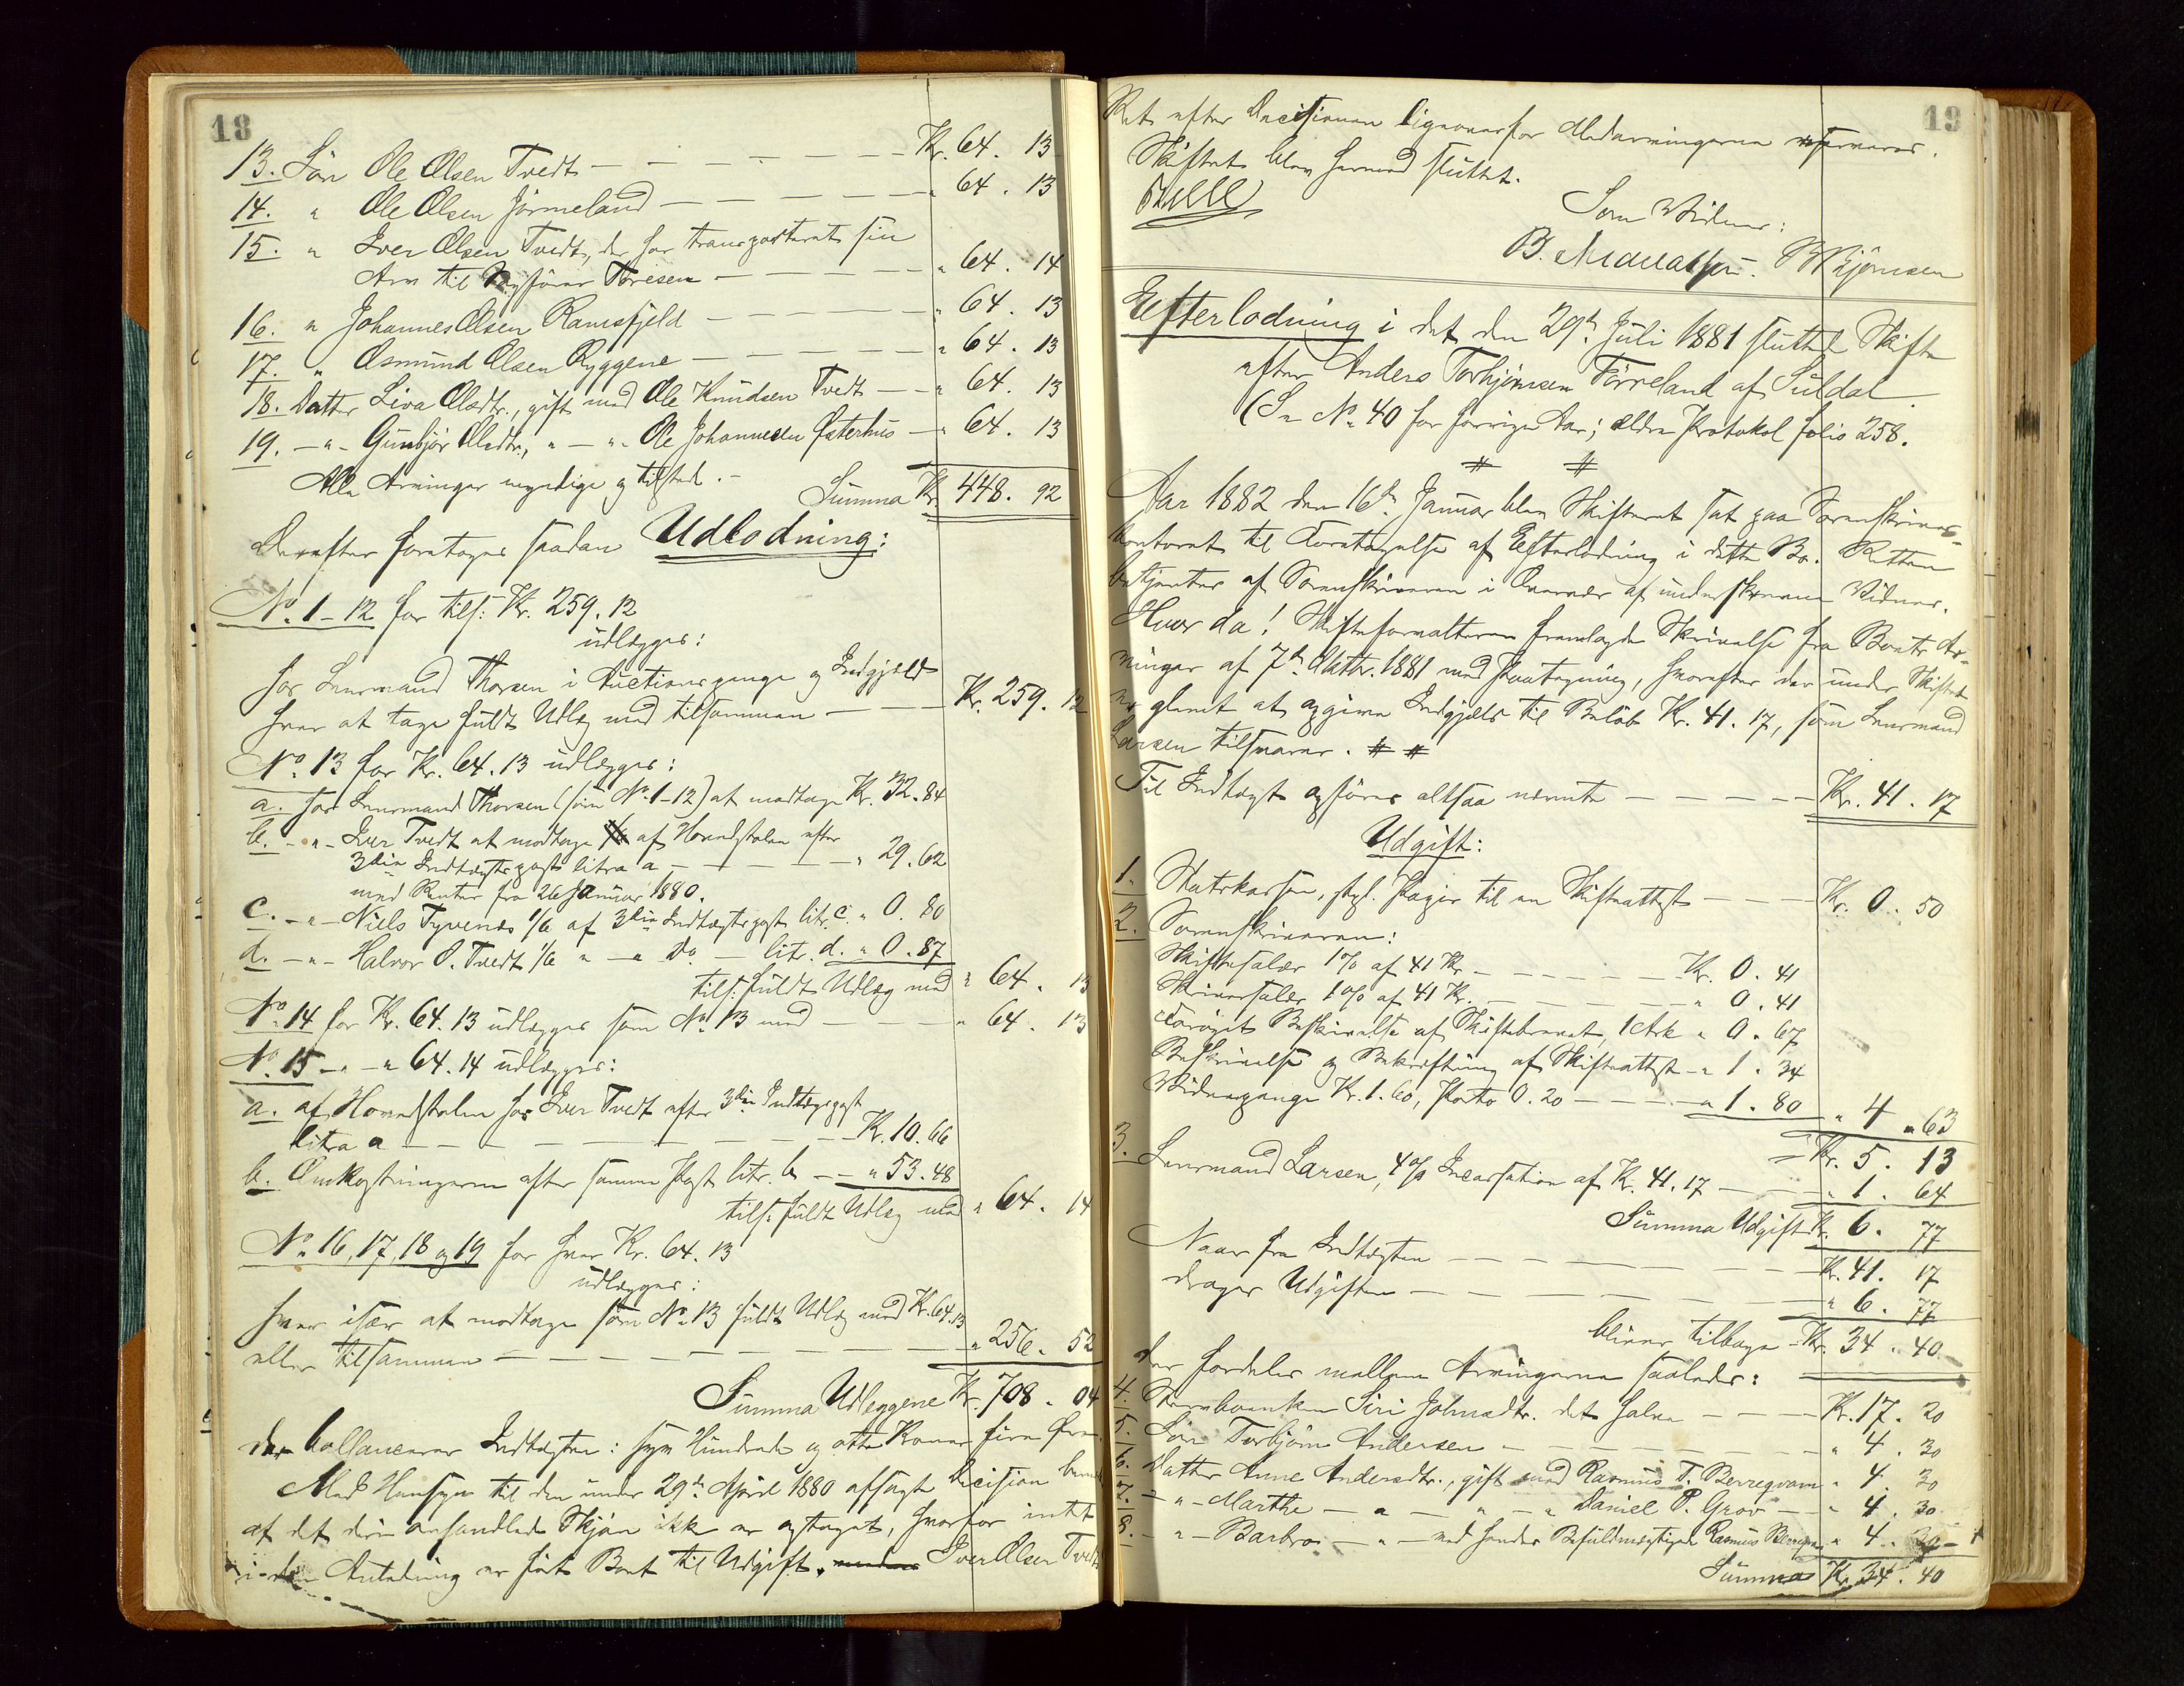 18
13. Søn Ole Olsen Tvedt — — — — — Kr. 64. 13
14. " Ole Olsen Jørmeland — — — — " 64. 13
15. " Iver Olsen Tvedt, der har transporteret sin
Arv til Toresen — — — — " 64. 14
16. " Johannes Olsen Ramsfjeld — — — — " 64. 13
17. " Osmund Olsen Ryggene — — — — " 64. 13
18. Datter Siva Olsdtr., gift med Ole Knudsen Tvedt — " 64. 13
19. — " — Gunbjør Olsdtr., " — " Ole Johannesen Østerhus — " 64. 13
Alle Arvinger myndige og tilstede. — Summa Kr. 448. 92
Derefter foretoges saadan Udlodning:
No. 1–12 for tils: Kr. 259. 12
udlægges:
hos Lensmand Thorsen i Auctionspenge og Indgjæld
hver at tage fuldt Udlæg med tilsammen — — — Kr. 259. 12
No. 13 for Kr. 64. 13 udlægges:
a. hos Lensmand Thorsen (som No. 1–12) at modtage Kr. 32. 84
b. — " — Iver Tvedt at modtage 1/6 af Hovedstolen efter
3die Indtægtspost litra a — — — — " 29. 62
med Renter fra 26 Januar 1880.
c. — " — Niels Tyvenæs 1/6 af 3die Indtægtspost litr. c. " 0. 80
d. — " — Halvor O. Tvedt 1/6 " — " Do. — litr. d. " 0. 87
tils: fuldt Udlæg med " 64. 13
No. 14 for Kr. 64. 13 udlægges som No. 13 med — — — " 64. 13
No. 15 — " — " 64. 14 udlægges:
a. af Hovedstolen hos Iver Tvedt efter 3die Indtægtspost
litra a — — — — — — Kr. 10. 66
b. Omkostningerne efter samme Post litr. b — — " 53. 48
tils: fuldt Udlæg med " 64. 14
No. 16, 17, 18 og 19 for hver Kr. 64. 13
udlægges:
hver især at modtage som No. 13 fuldt Udlæg med Kr. 64. 13
eller tilsammen — — — — — — " 256. 52
Summa Udlæggene Kr. 708. 04
der ballancerer Indtægten: syv Hundrede og otte Kroner fire Øre.
Med Hensyn til den under 29de April 1880 afsagte Decision
af det deri omhandlede Skjøn ikke er optaget, hvorfor intet
i den Anledning er ført Boet til Udgift, Iver Olsen Tvedt
19
Ret efter Decisionen ligeoverfor Medarvingerne reserveres.
Skiftet blev hermed sluttet.
Som Vidner:
B. B. Bjørnsen
Efterlodning i det den 29de Juli 1881 sluttede Skifte
efter Anders Torbjørnsen Førreland af Suldal.
(Se No. 40 for forrige Aar; ældre Protokol folio 258.
Aar 1882 den 16de Januar blev Skifteret sat paa Sorenskriver-
kontoret til Foretagelse af Efterlodning i dette Bo. Retten
betjentes af Sorenskriveren i Overvær af underskrevne Vidner.
Hvor da! Skifteforvalteren fremlagde Skrivelse fra Boets Ar-
vinger af 7de Oktbr. 1881 med Paategning, hvorefter der under Skiftet
er glemt at opgive Indgjæld til Beløb Kr. 41. 17, som Lensmand
Larsen tilsvarer.
Til Indtægt opføres altsaa nævnte — — — — Kr. 41. 17
Udgift:
1. Statskassen, stpl. Papir til en Skifteattest — — — Kr. 0. 50
2. Sorenskriveren:
Skiftesalær 1% af 41 Kr. — — — — Kr. 0. 41
Skriversalær 1% af 41 Kr. — — — — " 0. 41
Forøget Beskrivelse af Skiftebrevet, 1 Ark " 0. 67
Beskrivelse og Bekræftning af Skifteattest — " 1. 34
Vidnepenge Kr. 1. 60, Porto 0. 20 — — — — " 1. 80 " 4. 63
Kr. 5. 13
3. Lensmand Larsen, 4% Incassation af Kr. 41. 17 — — " 1. 64
Summa Udgift Kr. 6. 77
Naar fra Indtægten — — — — — — Kr. 41. 17
drages Udgiften — — — — — — " 6. 77
bliver tilbage — Kr. 34. 40.
der fordeles mellem Arvingerne saaledes:
4. Stervboenken Siri Johnsdtr. det halve — — — Kr. 17. 20
5. Søn Torbjørn Andersen — — — — — " 4. 30
6. Datter Anne Andersdtr., gift med Rasmus T. Berreqvam " 4. 30
7. — " — Marthe — " — " — " Daniel P. Grov — " 4. 30.
8. — " — Barbro — " — med hendes Befuldmægtigede Rasmus " 4. 30
Summa Kr. 34. 40